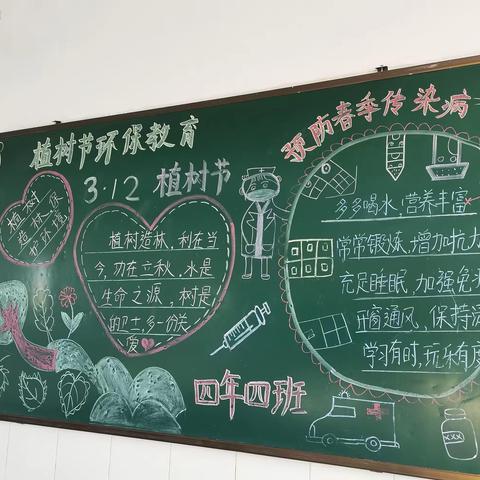 植树节环保教育
3.12 植树节
植树
造林,保
护环境
植树造林,利在当
今,功在立秋,水是
生命之源,树是
的卫士,多一份关
爱
四年四班
预防春季传染病
多多喝水,营养丰富
常常锻炼,增加抗力
充足睡眠,加强免
开窗通风,保持
学习有时,玩乐有度
xxx